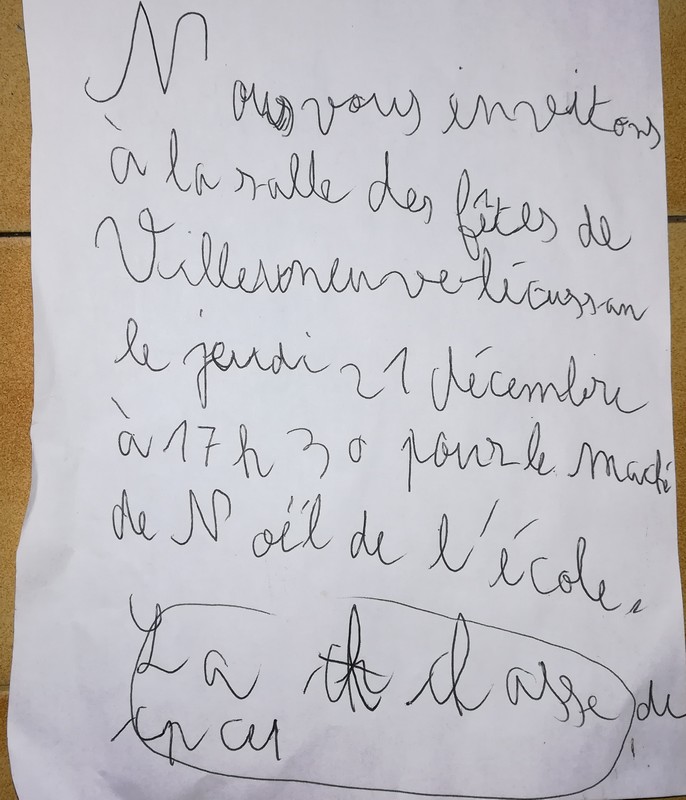 Nous vous inveitons
à la salle des fêtes de
Villesoneuve-lécussan
le jeudi 21 décembre
à 17h30 pour le maché
de Noël de l'école.
La classe de
cp ce1